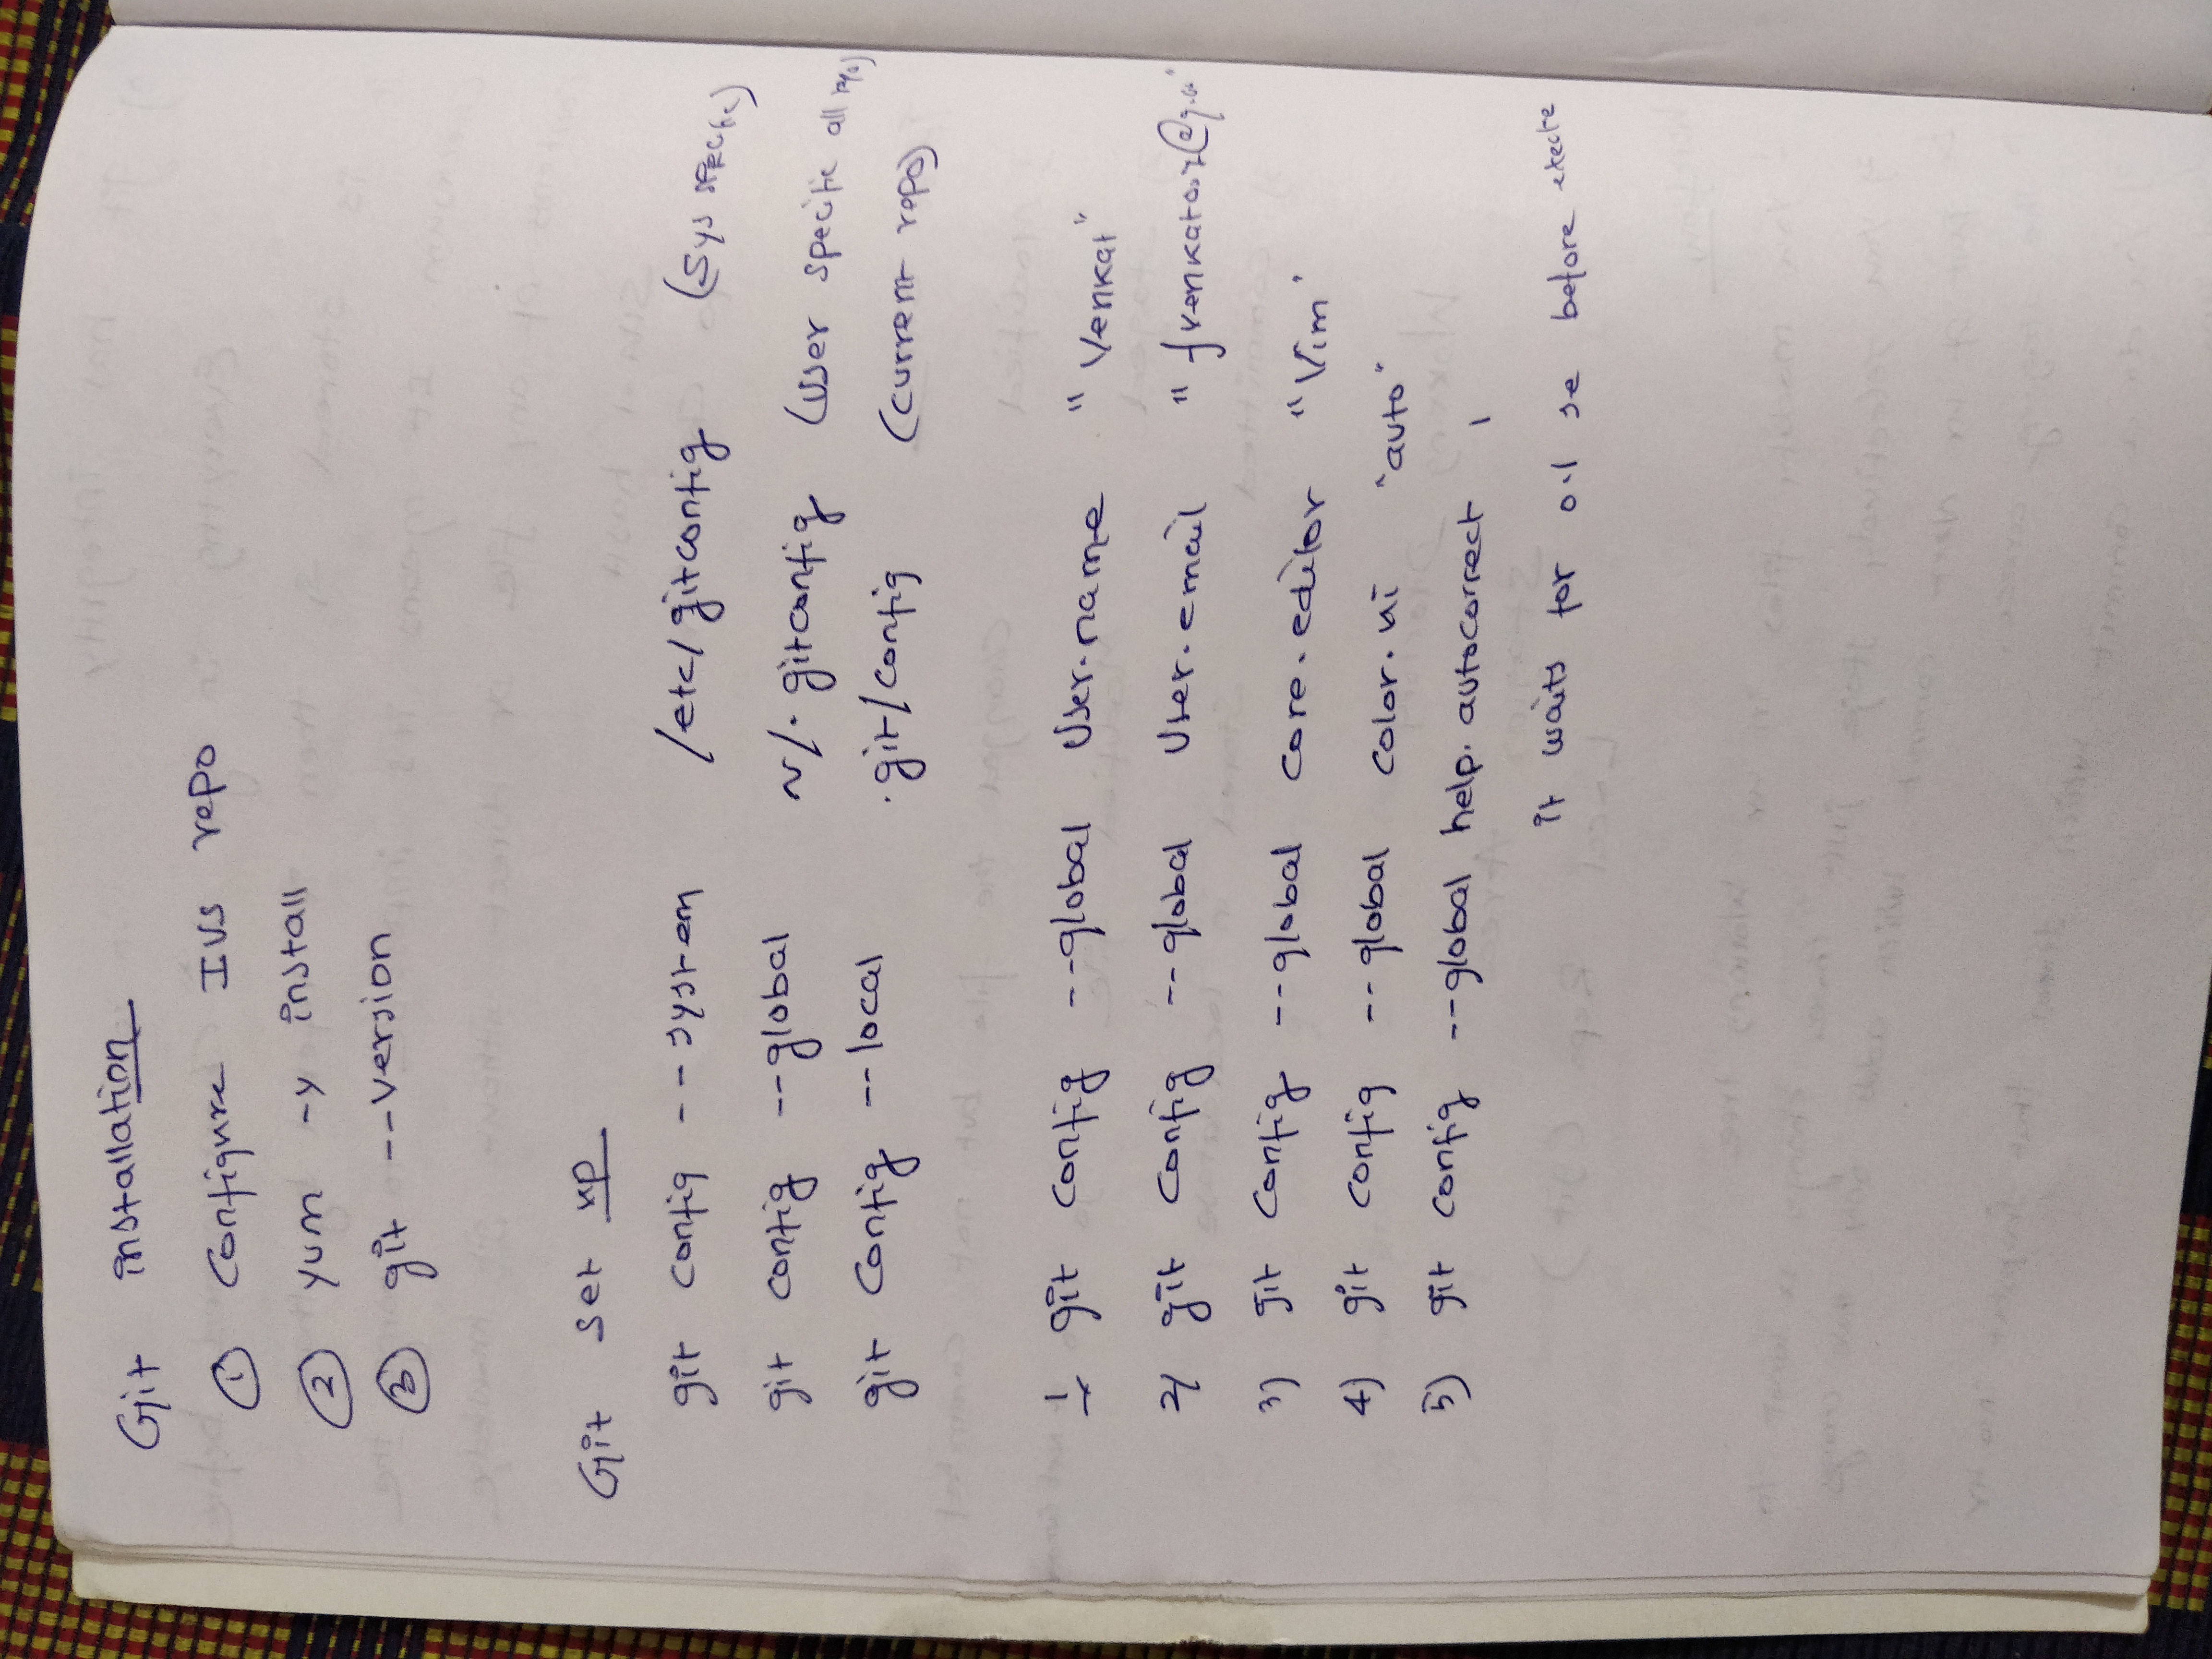 Git installation
① Configure IUS repo
② yum -y install
③ git --version
Git set up
git config --system /etc/gitconfig (sys specific)
git config --global ~/.gitconfig (user specific all repo)
git config --local .git/config (current repo)
1 git config --global user.name "Venkat"
2) git config --global user.email "
3) git config --global core.editor "Vim'
4) git config --global color.ui "auto"
5) git config --global help.autocorrect 1
it waits for 0.1 se before